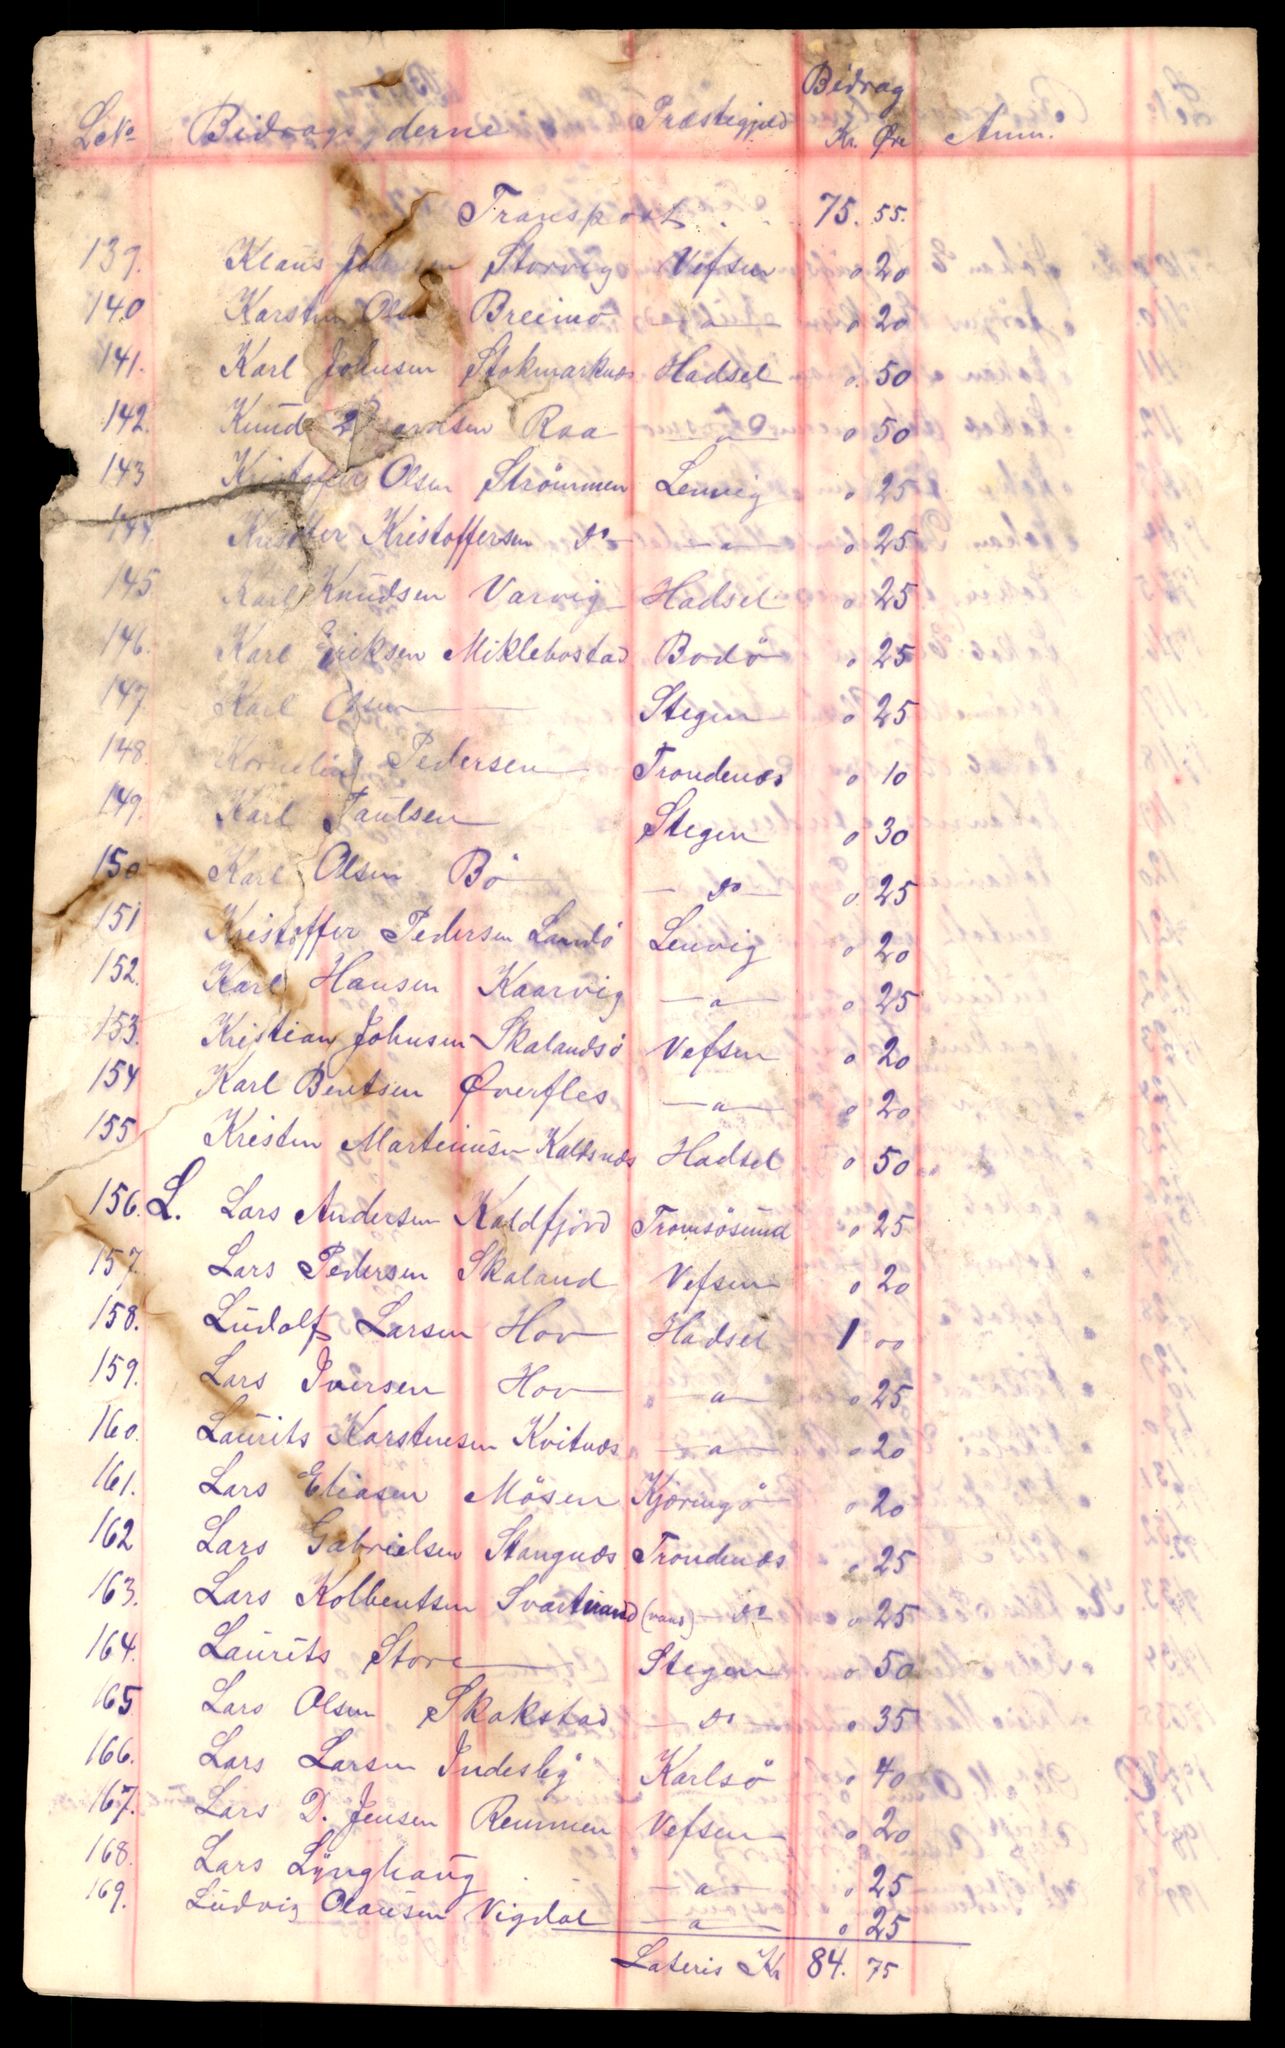 LNo Bidragsyderne Præstegjeld Bidrag Kr. Øre Anm.
Transport . . 75. 55.
139. Klaus Johnsen Storvig Vefsen 0 20
140 Karsten Olsen Breimo —"— 0 20
141. Karl Johnsen Stokmarknæs Hadsel 0. 50
142. Knud Raa —"— 0 50
143 Kristoffer Olsen Strömmen Lenvig 0 25
144. Kristoffer Kristoffersen do —"— 0 25
145 Karl Knudsen Varvig Hadsel 0 25
146. Karl Eriksen Miklebostad Bodö 0 25
147 Karl Olsen — Stegen 0 25
148. Kornelius Pedersen — Trondenæs 0 10
149. Karl Paulsen Stegen 0 30
150 Karl Olsen Bö — — do — 0. 25
151 Kristoffer Pedersen Sandö Lenvig 0 20
152. Karl Hansen Kaarvig —"— 0 25
153. Kristian Johnsen Skalandsö Vefsen 0 20
154 Karl Bentsen Øverfles —"— 0 20
155 Kristen Martinusen Kaldsnæs Hadsel 0 50
156. L. Lars Andersen Kaldfjord Tromsösund 0 25
157. Lars Pedersen Skaland Vefsen 0 20
158. Ludolf Larsen Hov Hadsel 1 00
159. Lars Iversen Hov —"— 0 25
160. Laurits Karstensen Kvitnæs —"— 0 20
161. Lars Eliasen Mösen Kjæringö 0 20
162 Lars Gabrielsen Stangnæs Trondenæs 0 25
163. Lars Kolbentsen Svartvand (vand) — do 0 25
164. Laurits Store — Stegen 0 50
165 Lars Olsen Skakstad — do 0 35
166. Lars Larsen Indesby Karlsö 0 40
167. Lars D. Jensen Remmen Vefsen 0 20
168. Lars Lynghaug . . —"— 0 25
169. Ludvig Olausen Vigdal —"— 0 25
Lateris Kr 84. 75